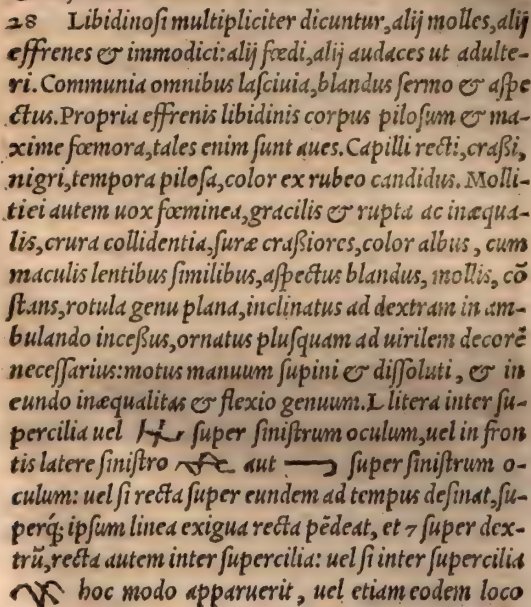 28 Libidinoſi multipliciter dicuntur, alij molles, alij
effrenes & immodici: alij fœdi, alij audaces ut adulte-
ri. Communia omnibus laſciuia, blandus ſermo & aſpe
ctus. Propria effrenis libidinis corpus piloſum & ma-
xime fœmora, tales enim ſunt aues. Capilli recti, craßi,
nigri, tempora piloſa, color ex rubeo candidus. Molli-
tiei autem uox fœminea, gracilis & rupta ac inæqua-
lis, crura collidentia, ſuræ craßiores, color albus, cum
maculis lentibus ſimilibus, aſpectus blandus, mollis, cõ
ſtans, rotula genu plana, inclinatus ad dextram in am-
bulando inceßus, ornatus pluſquam ad uirilem decorẽ
neceſſarius: motus manuum ſupini & diſſoluti, & in
eundo inæqualitas & flexio genuum. L litera inter ſu-
percilia uel ſuper ſiniſtrum oculum, uel in fron
tis latere ſiniſtro aut ſuper ſiniſtrum o-
culum: uel ſi recta ſuper eundem ad tempus deſinat, ſu-
perq́; ipſum linea exigua recta pẽdeat, et 7 ſuper dex-
trũ, recta autem inter ſupercilia: uel ſi inter ſupercilia
hoc modo apparuerit, uel etiam eodem loco